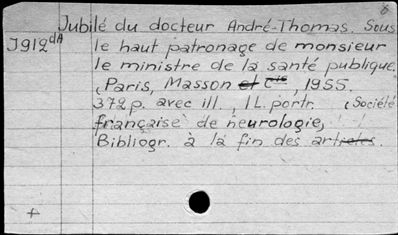 Jubilé du docteur André-Thomas. Sous
J912dA le haut patronage de monsieur
le ministre de la santé publique.
Paris, Masson et Cie, 1955.
372p. avec ill., 1 L. portr. (Société
française de neurologie)
Bibliogr. à la fin des articles.
+